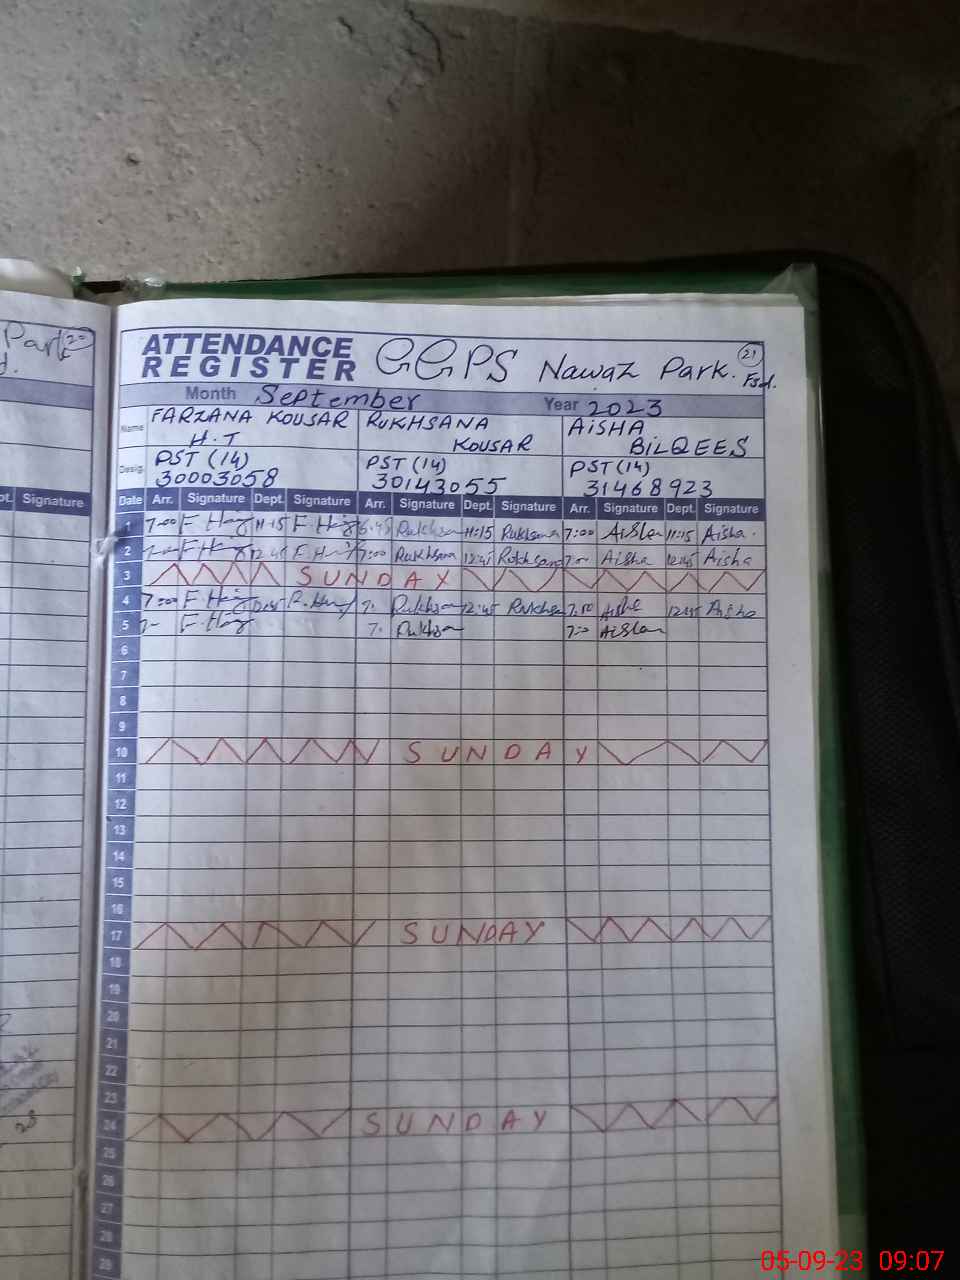 Park 20
d.
ATTENDANCE
REGISTER
GGPS Nawaz Park. Fsd.
21
Month September Year 2023
Name FARZANA KOUSAR H.T RUKHSANA KOUSAR AISHA BILQEES
Desig. PST (14) 30003058 PST (14) 30143055 PST (14) 31468923
pt. Signature
Date Arr. Signature Dept. Signature Arr. Signature Dept. Signature Arr. Signature Dept. Signature
1 7-00 11:15 6:45 Rukhsana 11:15 Rukhsana 7:00 Aisha 11:15 Aisha.
2 12:45 7:00 Rukhsana 12:45 Rukhsana Aisha 12:45 Aisha
3 SUNDAY
4 7:00 7. Rukhsana 12:45 12:45 Aisha
5 7- 7. Rukhsana
6
7
8
9
10 SUNDAY
11
12
13
14
15
16
17 SUNDAY
18
19
20
21
22
23
24 SUNDAY
25
26
27
28
29
05-09-23 09:07